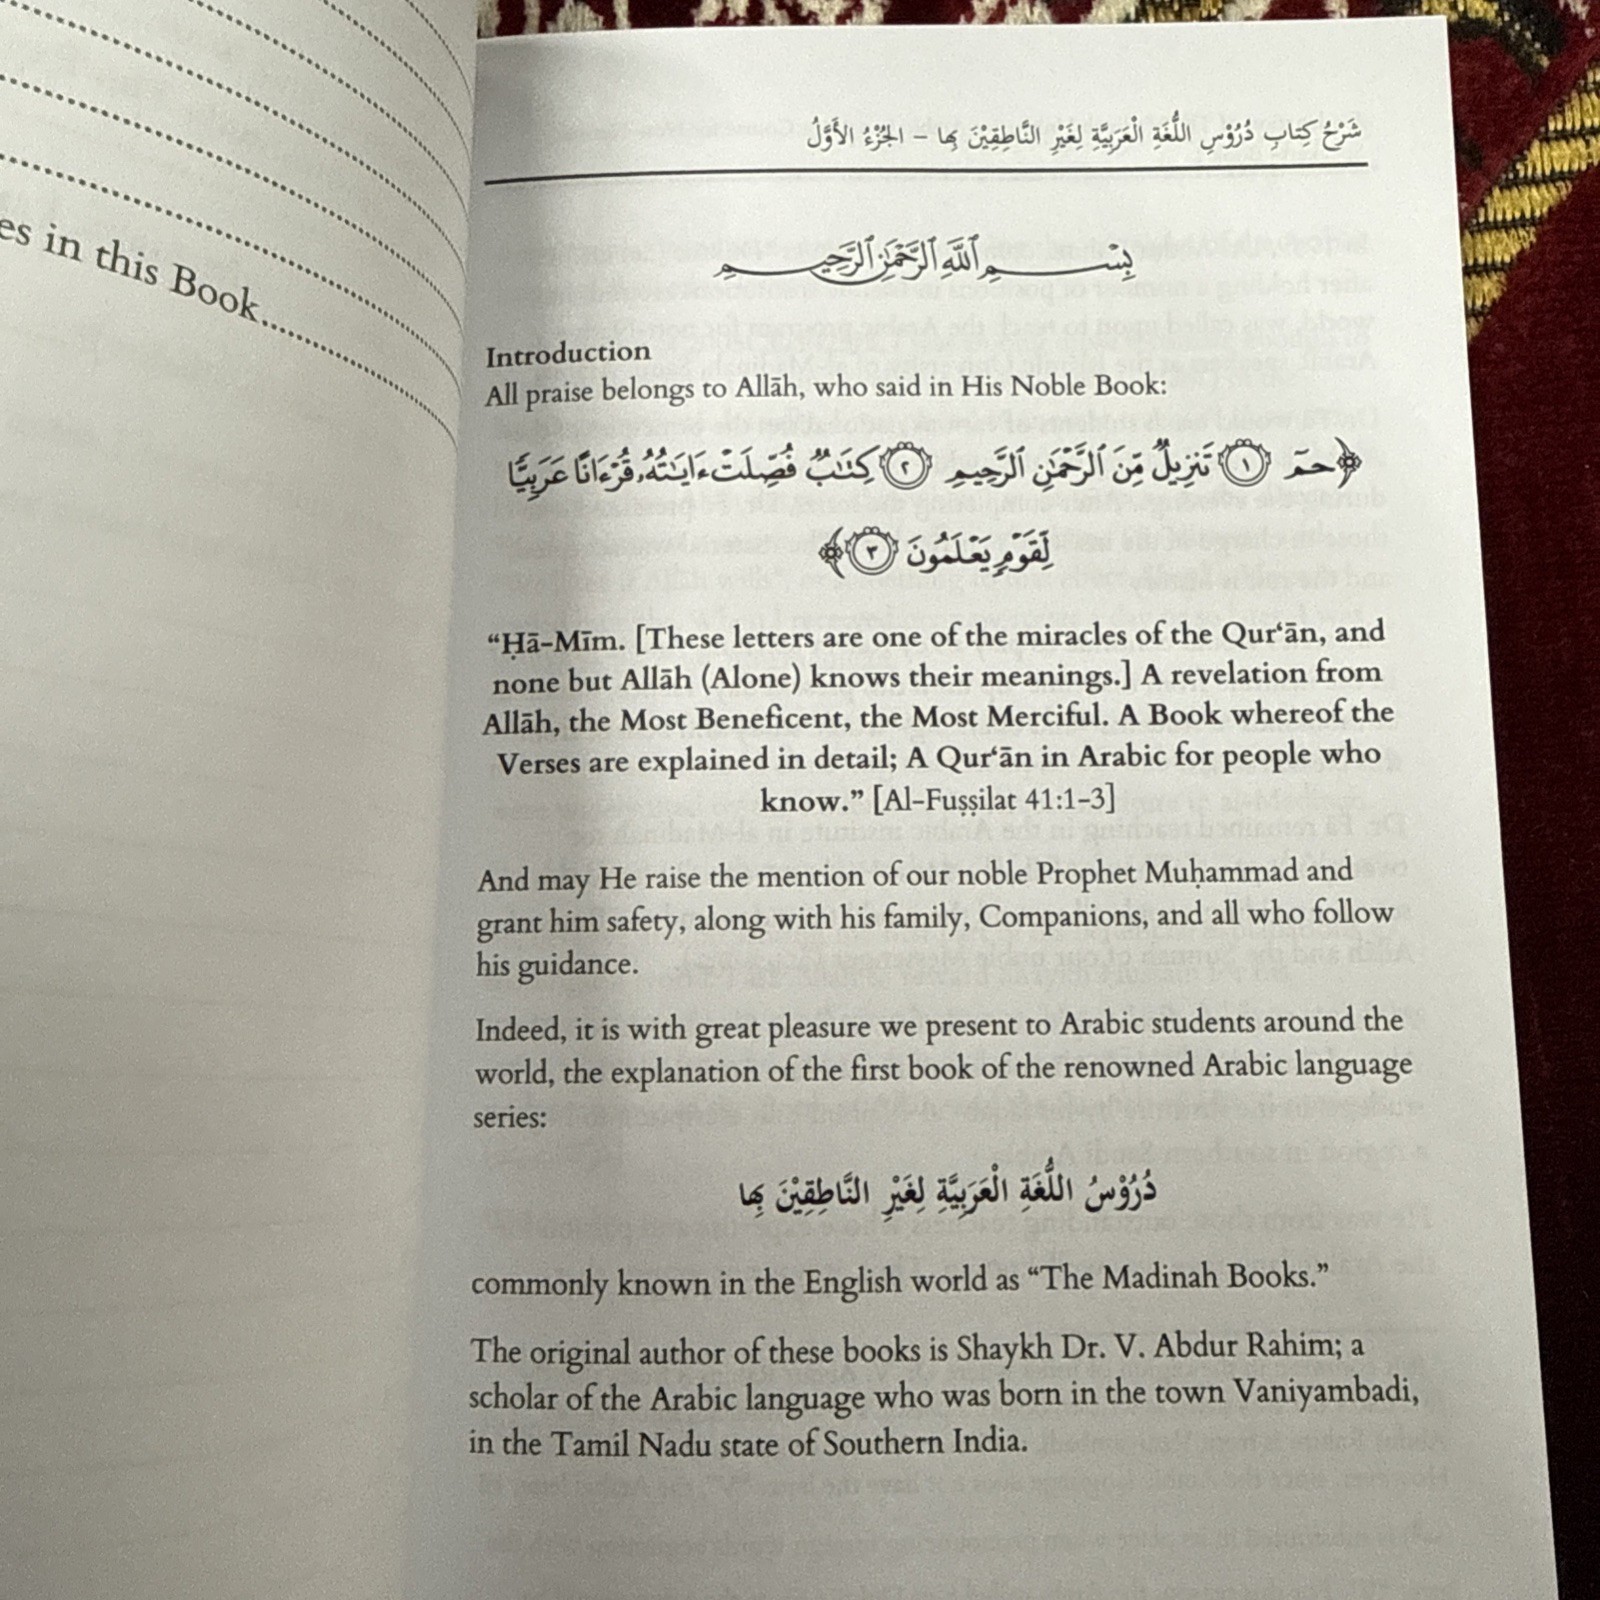 es in this Book..............
شَرْحُ كِتَابِ دُرُوْسِ اللُّغَةِ الْعَرَبِيَّةِ لِغَيْرِ النَّاطِقِيْنَ بِهَا – الجُزْءُ الأَوَّلُ
بِسْمِ ٱللَّهِ ٱلرَّحْمَٰنِ ٱلرَّحِيمِ
Introduction
All praise belongs to Allāh, who said in His Noble Book:
﴿حمٓ ١ تَنزِيلٌ مِّنَ ٱلرَّحْمَٰنِ ٱلرَّحِيمِ ٢ كِتَٰبٌ فُصِّلَتْ ءَايَٰتُهُۥ قُرْءَانًا عَرَبِيًّا
لِّقَوْمٍ يَعْلَمُونَ ٣﴾
“Ḥā-Mīm. [These letters are one of the miracles of the Qur‘ān, and
none but Allāh (Alone) knows their meanings.] A revelation from
Allāh, the Most Beneficent, the Most Merciful. A Book whereof the
Verses are explained in detail; A Qur‘ān in Arabic for people who
know.” [Al-Fuṣṣilat 41:1-3]
And may He raise the mention of our noble Prophet Muḥammad and
grant him safety, along with his family, Companions, and all who follow
his guidance.
Indeed, it is with great pleasure we present to Arabic students around the
world, the explanation of the first book of the renowned Arabic language
series:
دُرُوْسُ اللُّغَةِ الْعَرَبِيَّةِ لِغَيْرِ النَّاطِقِيْنَ بِهَا
commonly known in the English world as “The Madinah Books.”
The original author of these books is Shaykh Dr. V. Abdur Rahim; a
scholar of the Arabic language who was born in the town Vaniyambadi,
in the Tamil Nadu state of Southern India.